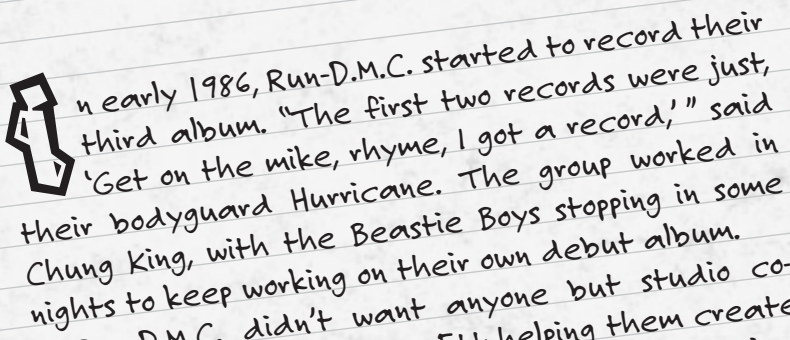 In early 1986, Run-D.M.C. started to record their
third album. "The first two records were just,
'Get on the mike, rhyme, I got a record,'" said
their bodyguard Hurricane. The group worked in
Chung King, with the Beastie Boys stopping in some
nights to keep working on their own debut album.
D.M.C. didn't want anyone but studio co-
helping them create